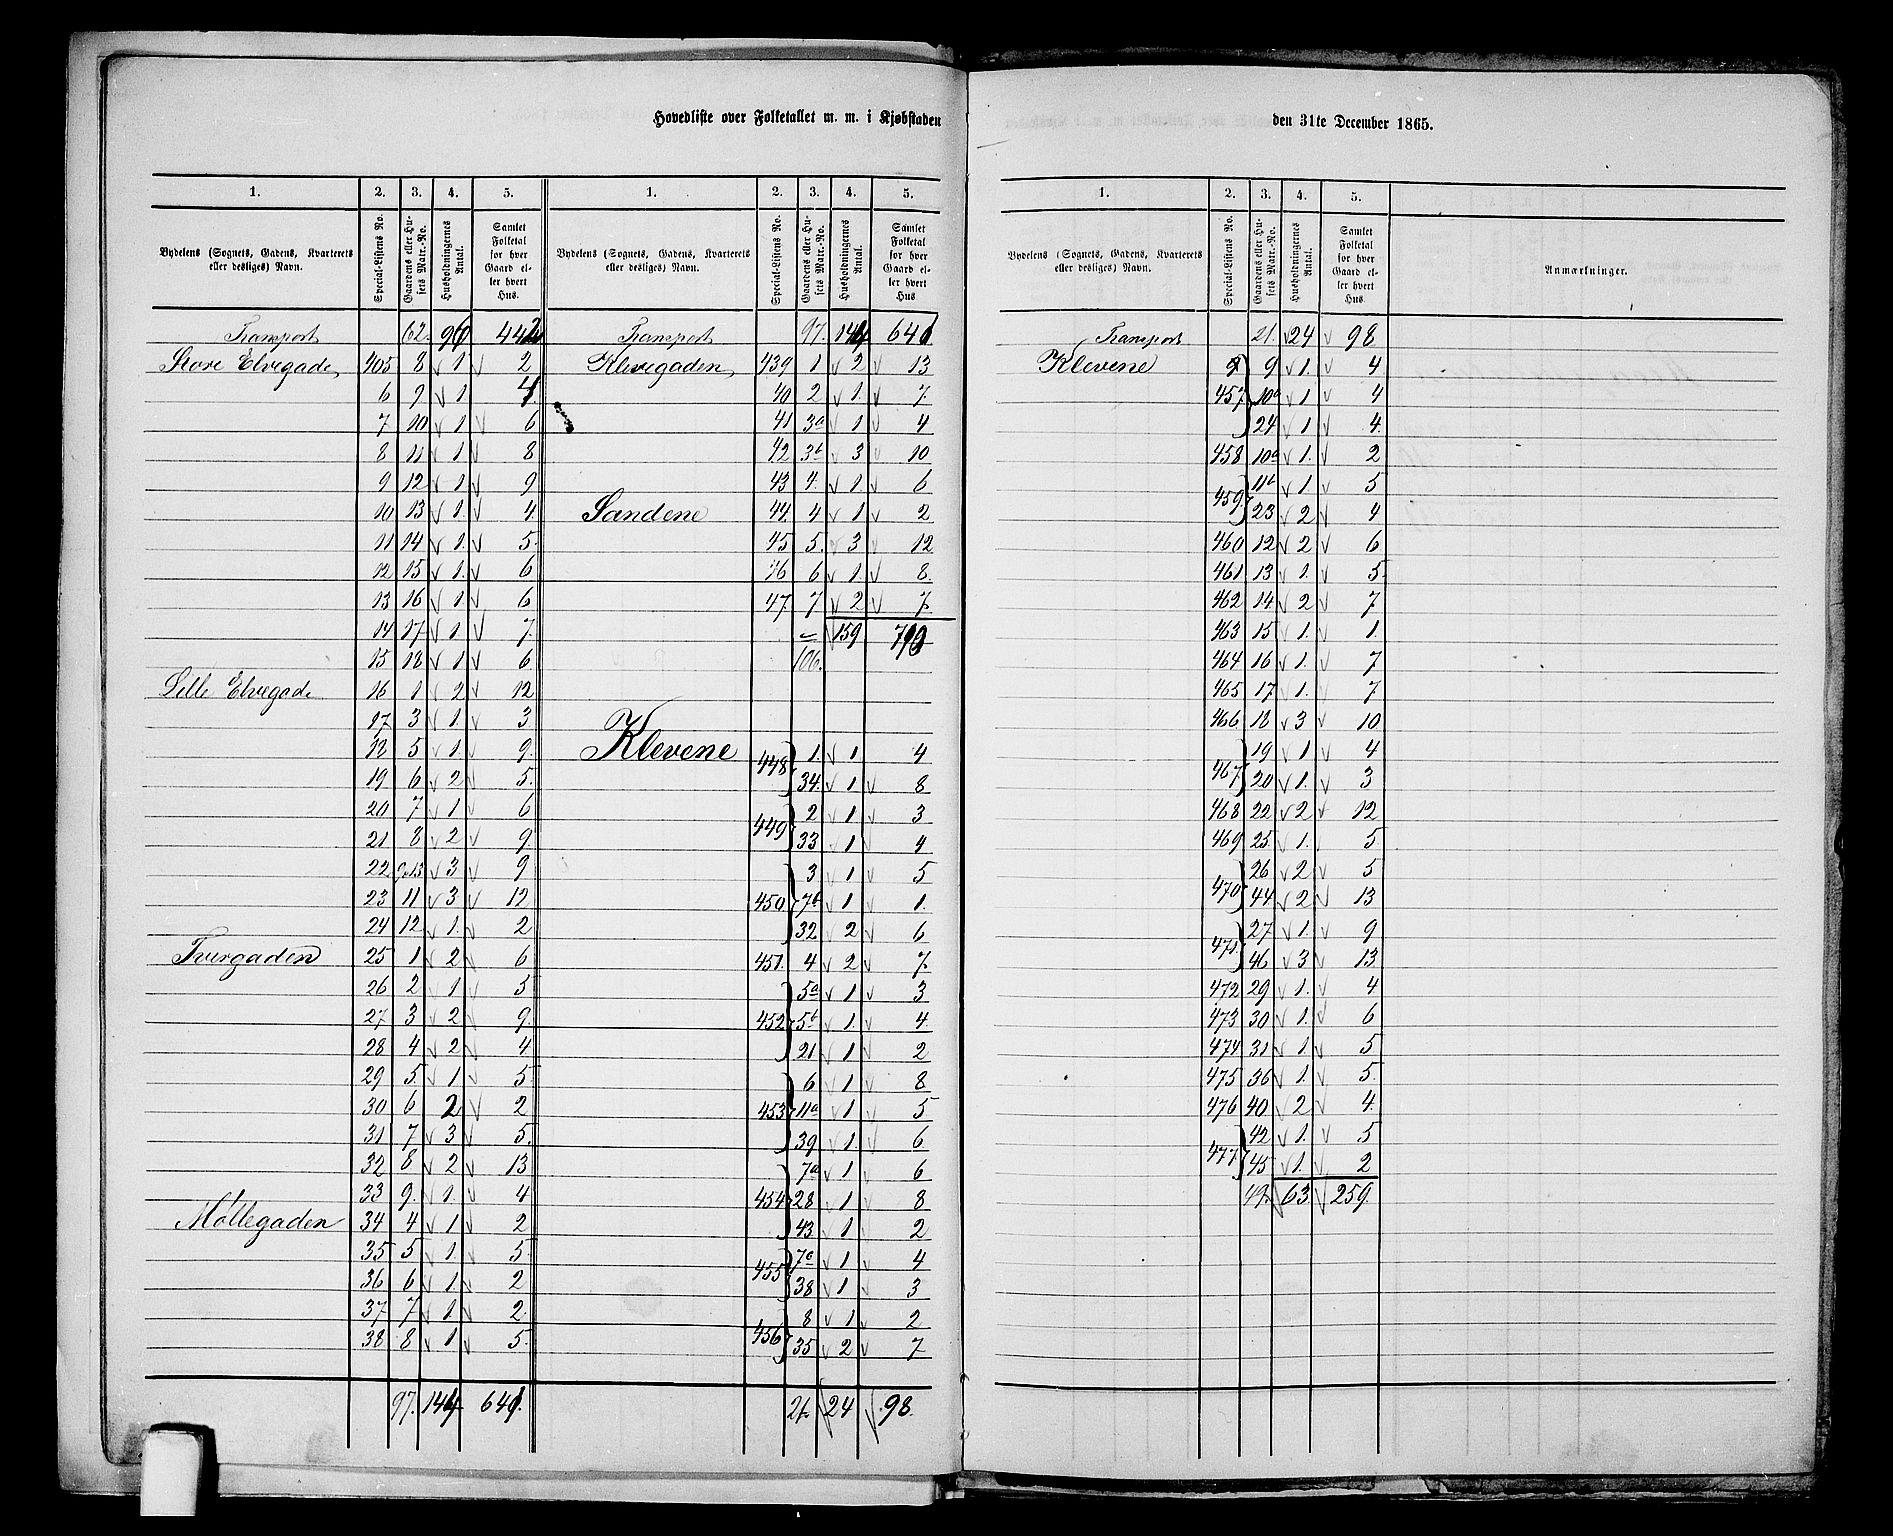 Hovedliste over Folketallet m. m. i Kjøbstaden den 31te December 1865.
1. 2. 3. 4. 5. 1. 2. 3. 4. 5.
Bydelens (Sognets, Gadens, Kvarterets eller desliges) Navn. Special-Listens No. Gaardens eller Husets Matr.-No. Husholdningernes Antal. Samlet Folketal for hver Gaard eller hvert Hus. Bydelens (Sognets, Gadens, Kvarterets eller desliges) Navn. Special-Listens No. Gaardens eller Husets Matr.-No. Husholdningernes Antal. Samlet Folketal for hver Gaard eller hvert Hus
Transport 62. 96 442 Transport 97. 144 641
Store Elvegade, 405 8 1 2 Klevegaden, 439 1 2 13
6 9 1 4. 40 2 1. 7.
7 10 1 6 41 3a 1 4
8 11 1 8 42 3b 3 10
9 12 1 9 43 4. 1. 6
10 13 1. 4 Sandene 44. 4 1 2
11 14 1. 5. 45 5. 3 12
12 15 1. 6 46 6 1 8.
13 16 1. 6 47. 7 2 7.
14 17 1 7. 159 710
15 18 1 6 106.
Lille Elvegade 16 1 2 12
17. 3 1. 3
18 5 1. 9. Klevene 448 1. 1 4
19 6 2 5. 34. 1 8
20 7 1 6 449 2 1 3
21 8 2 9. 33 1 4
22 9.13 3 9 3 1 5
23 11 3 12 450 7b 1 1.
24 12 1. 2 32 2 6
Tvergaden 25 1 2 6 451. 4 2 7.
26 2 1 5 5a 1 3
27 3 2 9. 452 5b 1. 4.
28 4 2 4 21 1 2
29 5. 1 5. 6 1 8
30 6 2 2 453 11a 1 5
31 7 3 5. 39 1. 6
32 8 2 13 7a 1 6
33 9. 1. 4 454 28 1 8
Møllegaden 34 4 1 2 43 1 2
35 5 1. 5. 455 7c 1 4
36 6 1 2 38 1 3
37 7 1 2. 456 8 1 2
38 8 1 5. 35 2 7
97. 144 641. 21. 24 98.
1. 2. 3. 4. 5.
Bydelens (Sognets, Gadens, Kvarterets eller desliges) Navn. Special-Listens No. Gaardens eller Husets Matr.-No. Husholdningernes Antal. Samlet Folketal for hver Gaard eller hvert Hus. Anmærkninger.
Transport 21. 24 98
Klevene 9 1. 4
457. 10a 1 4
24 1 4.
458 10a 1. 2
459. 11b 1 5
23 2 4
460 12 2 6
461 13 1. 5
462 14 2 7
463 15 1. 1.
464 16 1. 7
465 17 1. 7
466 18 3 10
467. 19 1 4
20 1. 3
468 22 2 12
469 25 1. 5
470 26 2 5
44 2 13
471. 27 1. 9
46 3 13
472 29 1. 4
473 30 1. 6
474 31 1. 5
475 36 1. 5.
476 40 2 4.
477. 42 1. 5
45 1. 2
49. 63 259.